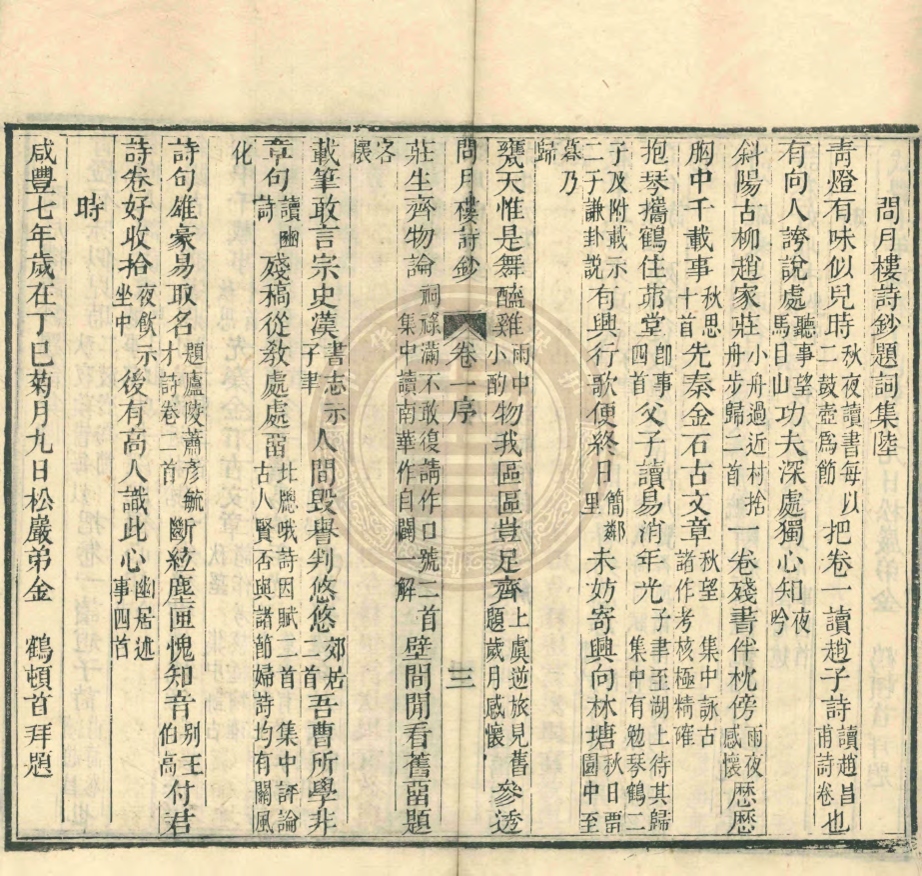 問月樓詩鈔題詞集陸
靑燈有味似兒時秋夜讀書每以二鼓壺爲節把卷一讀趙子詩讀趙昌甫詩卷也
有向人誇說處聽事望馬目山功夫深處獨心知夜吟
斜陽古柳趙家莊小舟過近村捨舟步歸二首一卷殘書伴枕傍雨夜感懷歷歷
胸中千載事秋思十首先秦金石古文章秋望　集中詠古諸作考核極精確
抱琴攜鶴住茆堂卽事四首父子讀易消年光子聿至湖上待其歸集中有勉琴鶴二
子及附載示二子謙卦說有興行歌便終日簡鄰里未妨寄興向林塘秋日畱園中至
暮乃歸
甕天惟是舞醯雞雨中小酌物我區區豈足齊上虞逆旅見舊題歲月感懷參透
問月樓詩鈔　卷一序　三
莊生齊物論祠祿滿不敢復請作口號二首集中讀南華作自闢一解壁間閒看舊畱題
客懷
載筆敢言宗史漢書志示子聿人間毀譽判悠悠郊居二首吾曹所學非
章句讀豳詩殘稿從敎處處畱北牕哦詩因賦二首　集中評論古人賢否與諸節婦詩均有關風
化
詩句雄豪易取名題廬陵蕭彥毓才詩卷二首斷絃塵匣愧知音别王伯高付君
詩卷好收拾夜飲示坐中後有高人識此心幽居述事四首
時
咸豐七年歲在丁巳菊月九日松巖弟金　鶴頓首拜題